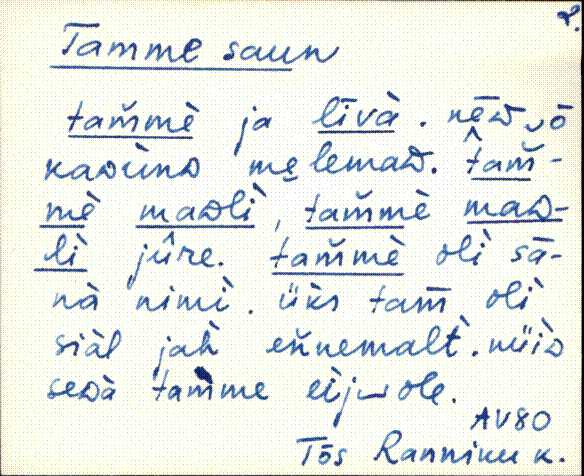 2.
Tamme saun
tam̆mè ja līvà. nēᴅ‿ō
kaᴅùnᴅ mȩlemaᴅ. t̂am̆-
mè maᴅlì, tam̆mè maᴅ-
lì jûre. tam̆mè olì sā-
nà nimì. üks tam̄ olì
siàl jah̀ en̆nemalt̀. nüìᴅ
seᴅà tamme eìj‿ole.
AV80
Tõs Ranniku k.